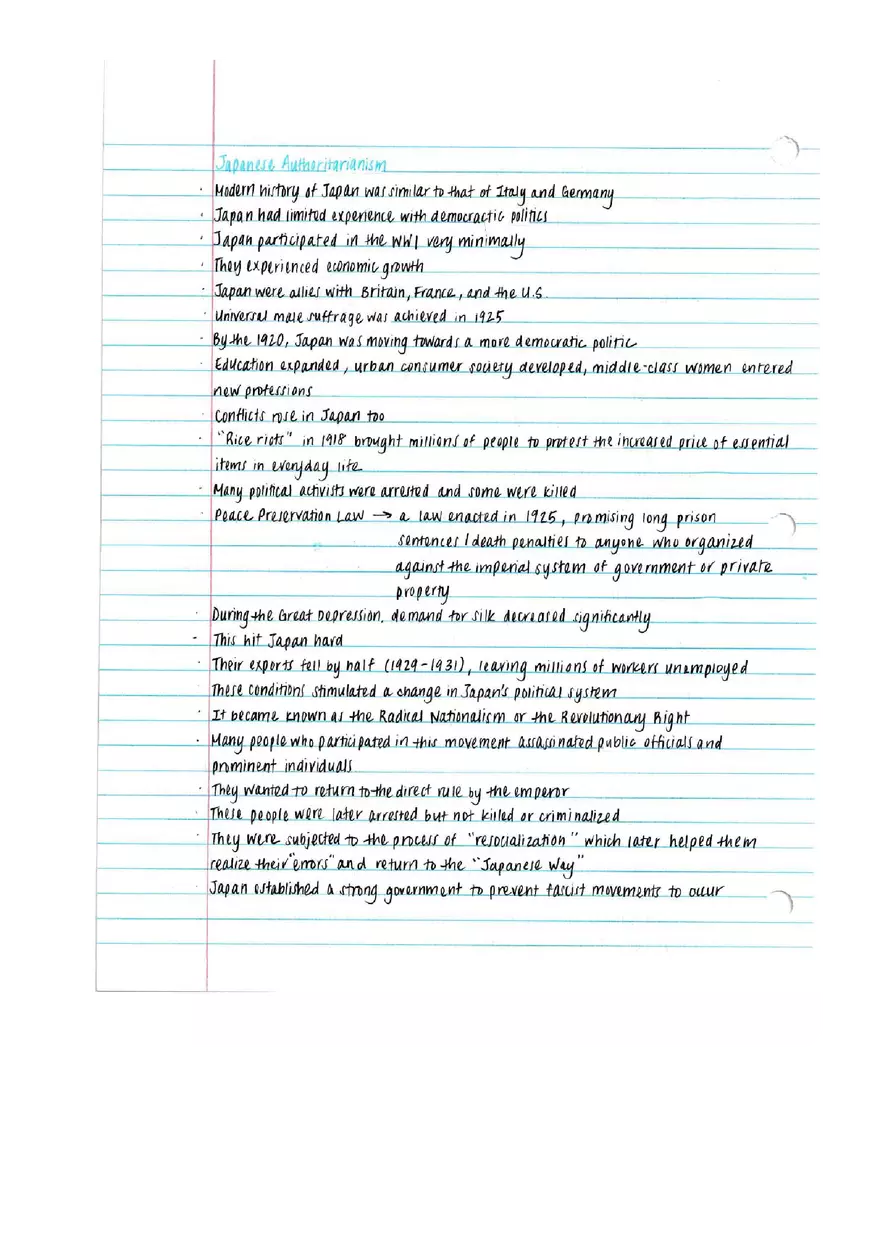 Japanese Authoritarianism
· Modern history of Japan was similar to that of Italy and Germany
· Japan had limited experience with democractic politics
· Japan participated in the WW1 very minimally
· They experienced economic growth
· Japan were allies with Britain, France, and the U.S.
· Universal male suffrage was achieved in 1925
· By the 1920, Japan was moving towards a more democratic politic
· Education expanded, urban consumer society developed, middle-class women entered
new professions
· Conflicts rose in Japan too
· "Rice riots" in 1918 brought millions of people to protest the increased price of essential
items in everyday life
· Many political activists were arrested and some were killed
· Peace Preservation Law → a law enacted in 1925, promising long prison
sentences / death penalties to anyone who organized
against the imperial system of government or private
property
· During the Great Depression, demand for silk decreased significantly
- This hit Japan hard
· Their exports fell by half (1929-1931), leaving millions of workers unemployed
These conditions stimulated a change in Japan's political system
· It became known as the Radical Nationalism or the Revolutionary Right
· Many people who participated in this movement assassinated public officials and
prominent individuals
· They wanted to return to the direct rule by the emperor
· These people were later arrested but not killed or criminalized
· They were subjected to the process of "resocialization" which later helped them
realize their "errors" and return to the "Japanese Way"
· Japan established a strong government to prevent fascist movements to occur